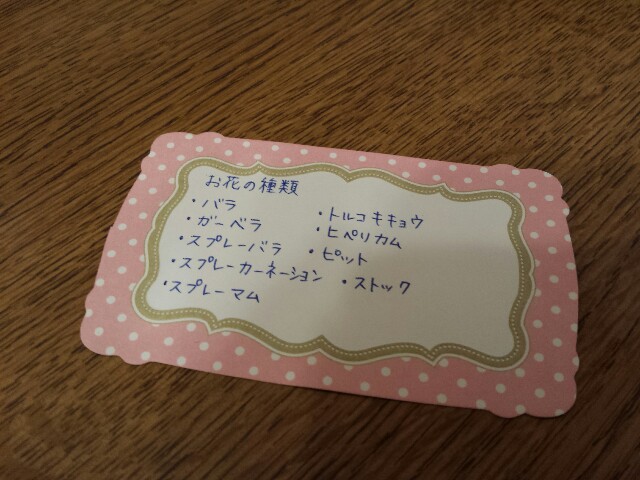 お花の種類
・バラ
・ガーベラ
・スプレーバラ
・スプレーカーネーション
・スプレーマム
・トルコキキョウ
・ヒペリカム
・ピット
・ストック